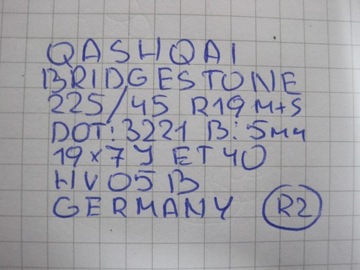 QASHQAI
BRIDGESTONE
225/45 R19 M+S
DOT: 3221 B: 5мм
19x7J ET40
HV05B
GERMANY R2